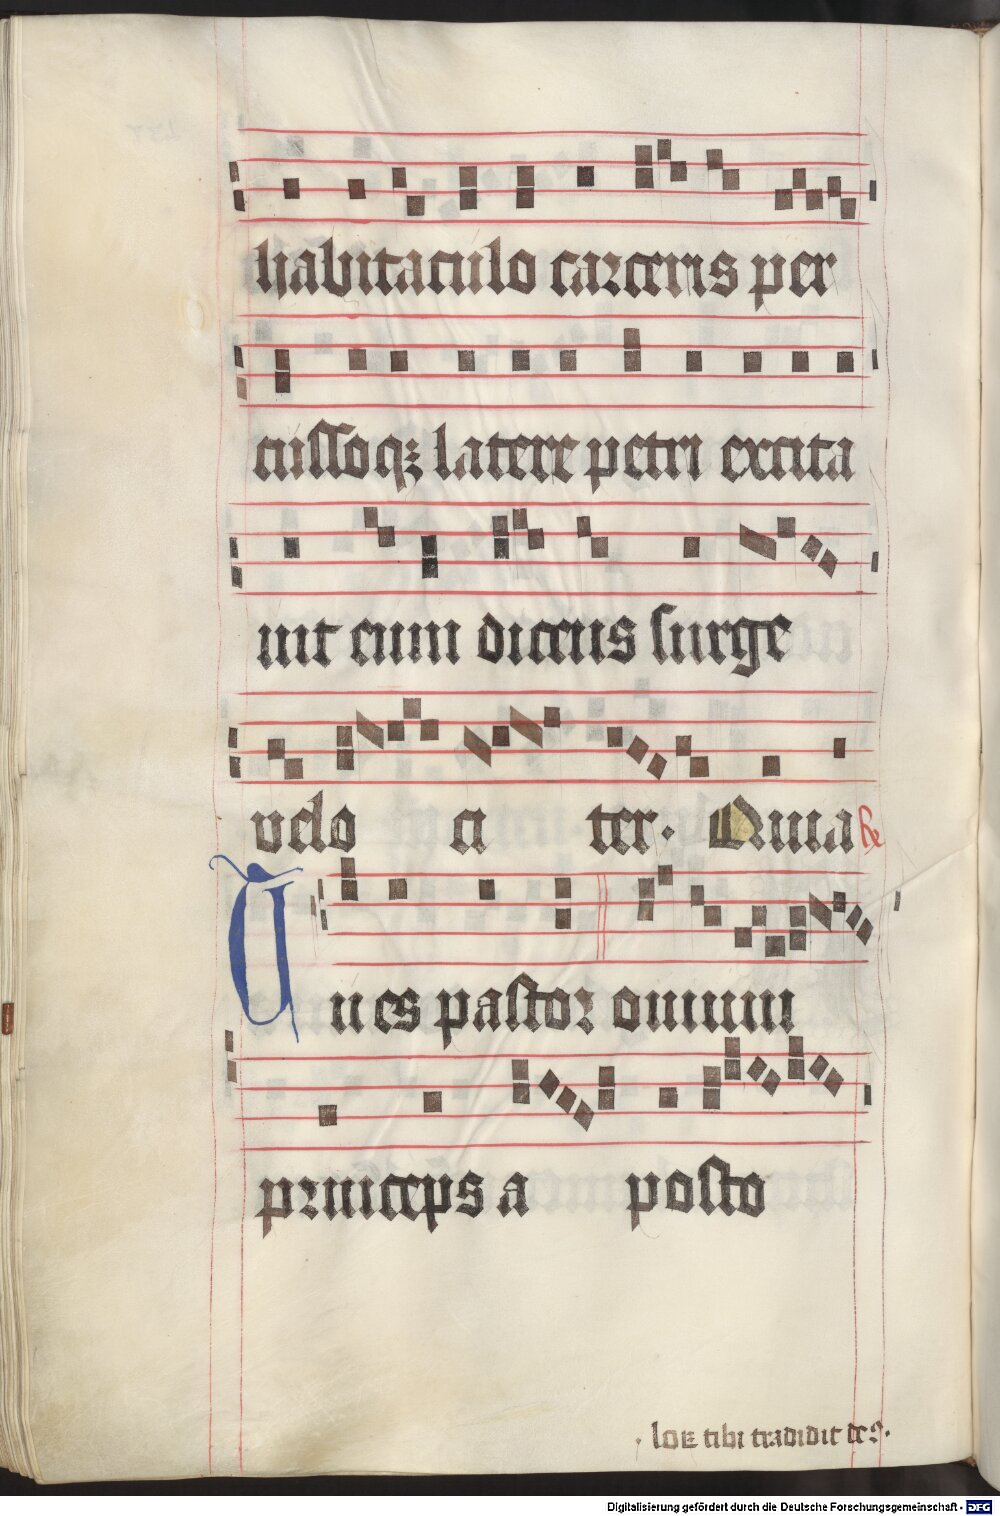 habitaculo carceris per
cussoqꝫ latere petri excita
uit eum dicens surge
uelo ci ter. Quia ℟
Tu es pastor ouium
princeps a posto
. loꝝ tibi tradidit de9.
Digitalisierung gefördert durch die Deutsche Forschungsgemeinschaft - DFG